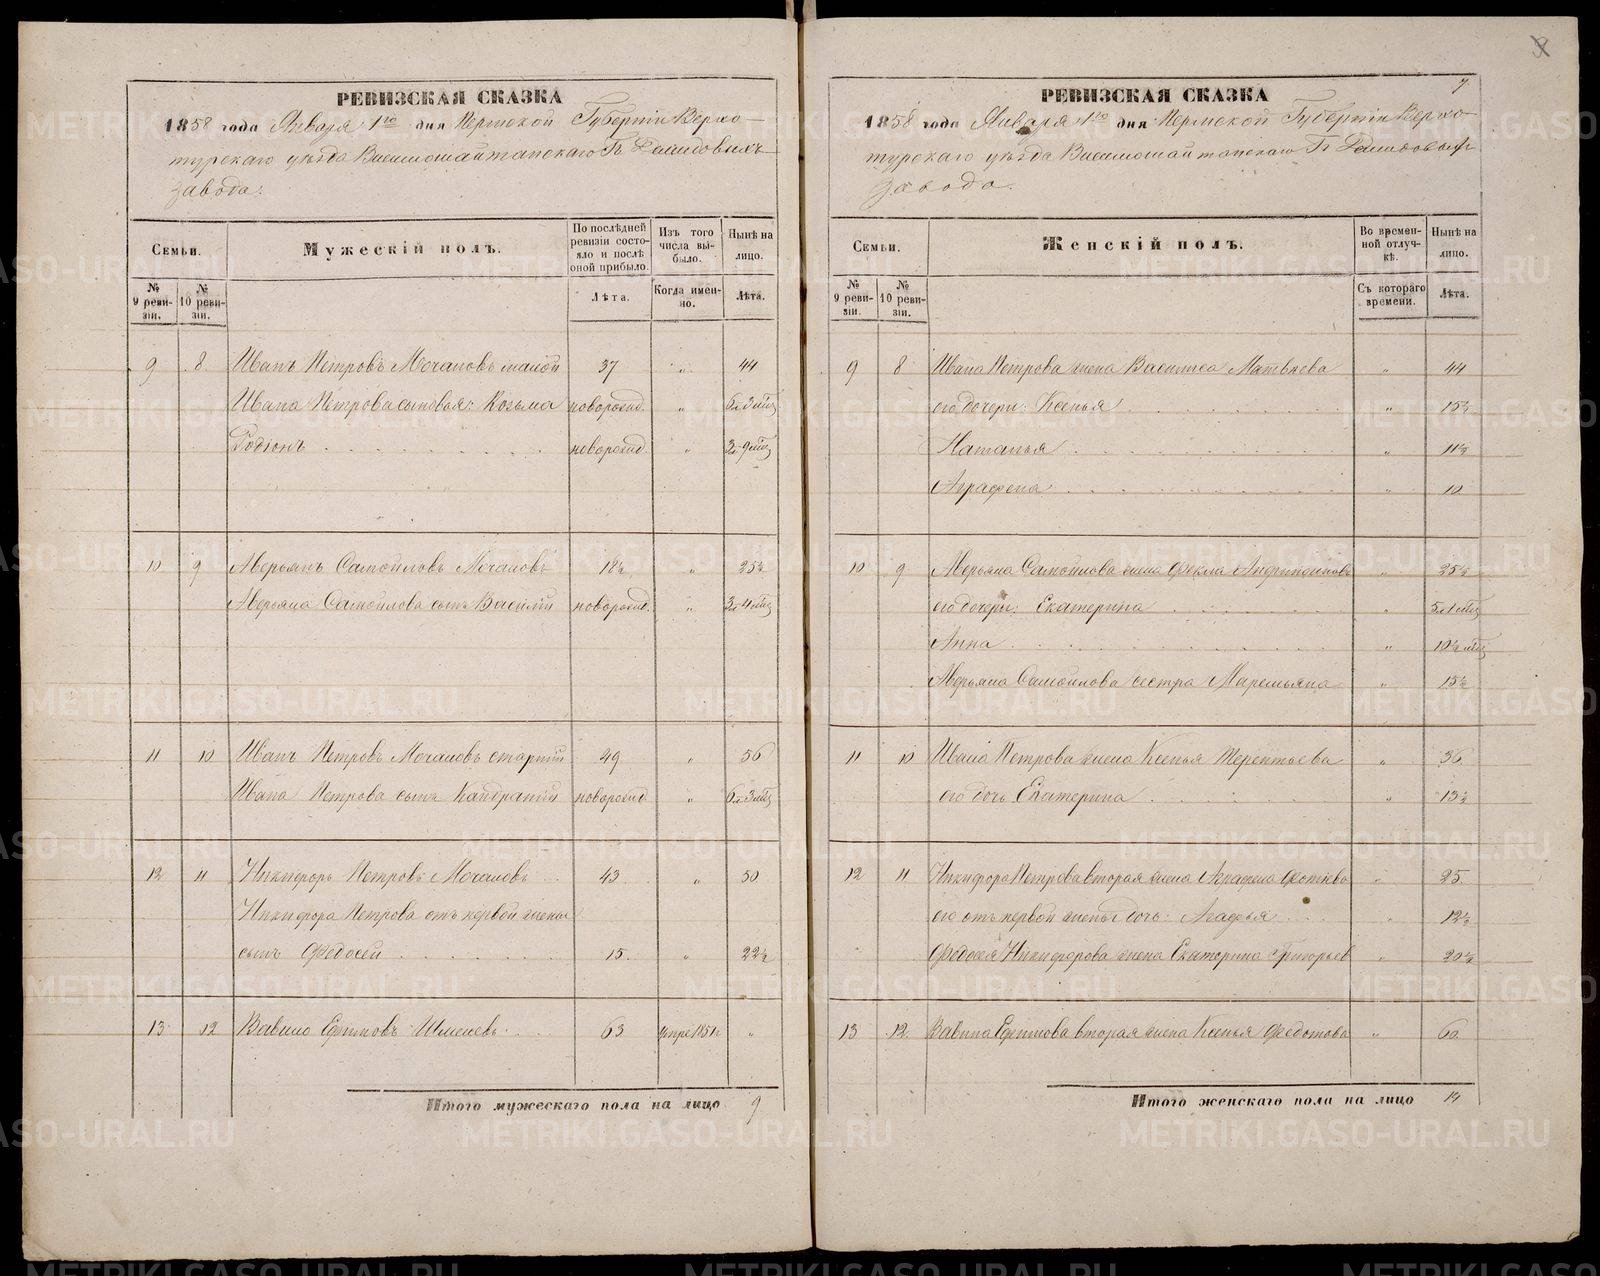 РЕВИЗСКАЯ СКАЗКА
1858 года Января 1го дня Пермской Губернiи Верхо-
турскаго уѣзда Висимошайтанскаго Гг Демидовыхъ
завода:
Семьи.
Мужескій полъ.
По послѣдней ревизіи состояло и послѣ оной прибыло.
Изъ того числа выбыло.
Нынѣ на лицо.
№ 9 ревизіи.
№ 10 ревизіи.
Лѣта.
Когда именно.
Лѣта.
9 8 Иванъ Петровъ Мочаловъ малой 37 " 44
Ивана Петрова сыновья: Козьма новорожд. " 6л 3 мѣс
Родіонъ новорожд. " 3л 9 мѣс
10 9 Аверьянъ Самойловъ Мочаловъ 18½ " 25½
Аверьяна Самойлова сынъ Василій новорожд. " 3л 4 мѣс
11 10 Иванъ Петровъ Мочаловъ старшій 49 " 56
Ивана Петрова сынъ Кандратій новорожд " 6л 3 мѣс
12 11 Никифоръ Петровъ Мочаловъ 43 " 50
Никифора Петрова отъ первой жены
сынъ Федосей 15 " 22½
13 12 Вавило Ефимовъ Шмелевъ 63 умре 1851г "
Итого мужескаго пола на лицо 9
8
7
РЕВИЗСКАЯ СКАЗКА
1858 года Января 1го дня Пермской Губернiи Верхо-
турскаго уѣзда Висимошайтанскаго Гг Демидовыхъ
завода.
Семьи.
Женскій полъ.
Во временной отлучкѣ.
Нынѣ на лицо.
№ 9 ревизіи.
№ 10 ревизіи.
Съ котораго времени.
Лѣта.
9 8 Ивана Петрова жена Василиса Матвѣева " 44
его дочери: Ксенья " 15½
Наталья " 11½
Аграфена " 10
10 9 Аверьяна Самойлова жена Фекла " 25½
его дочери: Екатерина " 5л 1 мѣс
Анна " 10½ мѣс
Аверьяна Самойлова сестра Маремьяна " 15½
11 10 Ивана Петрова жена Ксенья Терентьева " 56
его дочь Екатерина " 13½
12 11 Никифора Петрова вторая жена Аграфена Фотіева " 25
его отъ первой жены дочь: Агафья " 12½
Федосея Никифорова жена Екатерина Григорьев " 20½
13 12 Вавила Ефимова вторая жена Ксенья Федотова " 60
Итого женскаго пола на лицо 14
METRIKI.GASO-URAL.RU